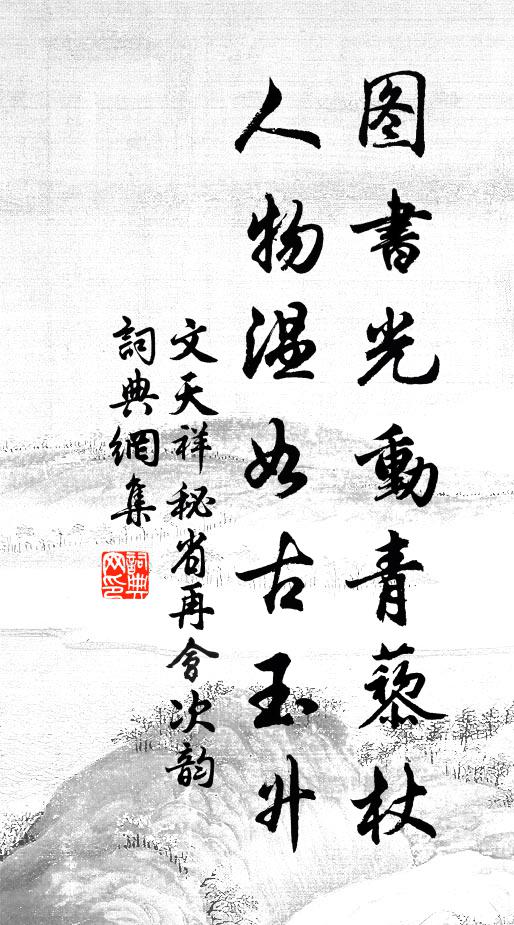 图書光動青藜杖
人物温如古玉升
文天祥秘省再會次韵
詞典網集
詞典网印